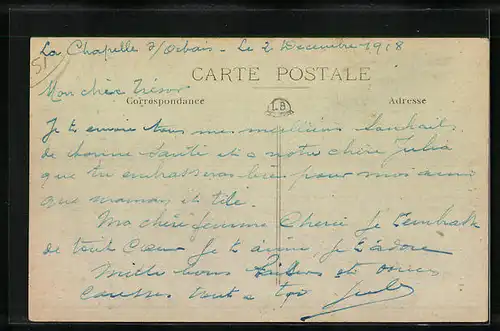 La Chapelle s/Orbais - Le 2 Decembre 1918
51
CARTE POSTALE
Mon chèr trésor
Correspondance
LB
Adresse
Je t'envoie tous mes meilleurs souhaits
de bonne santé et a notre chère Julia
que tu embrasseras bien pour moi ainsi
que maman et tité.
Ma chère femme Cherie Je t'embrasse
de tout Cœur Je t'aime, Je t'adore
Mille bons et
Caresses tout a toi Jules